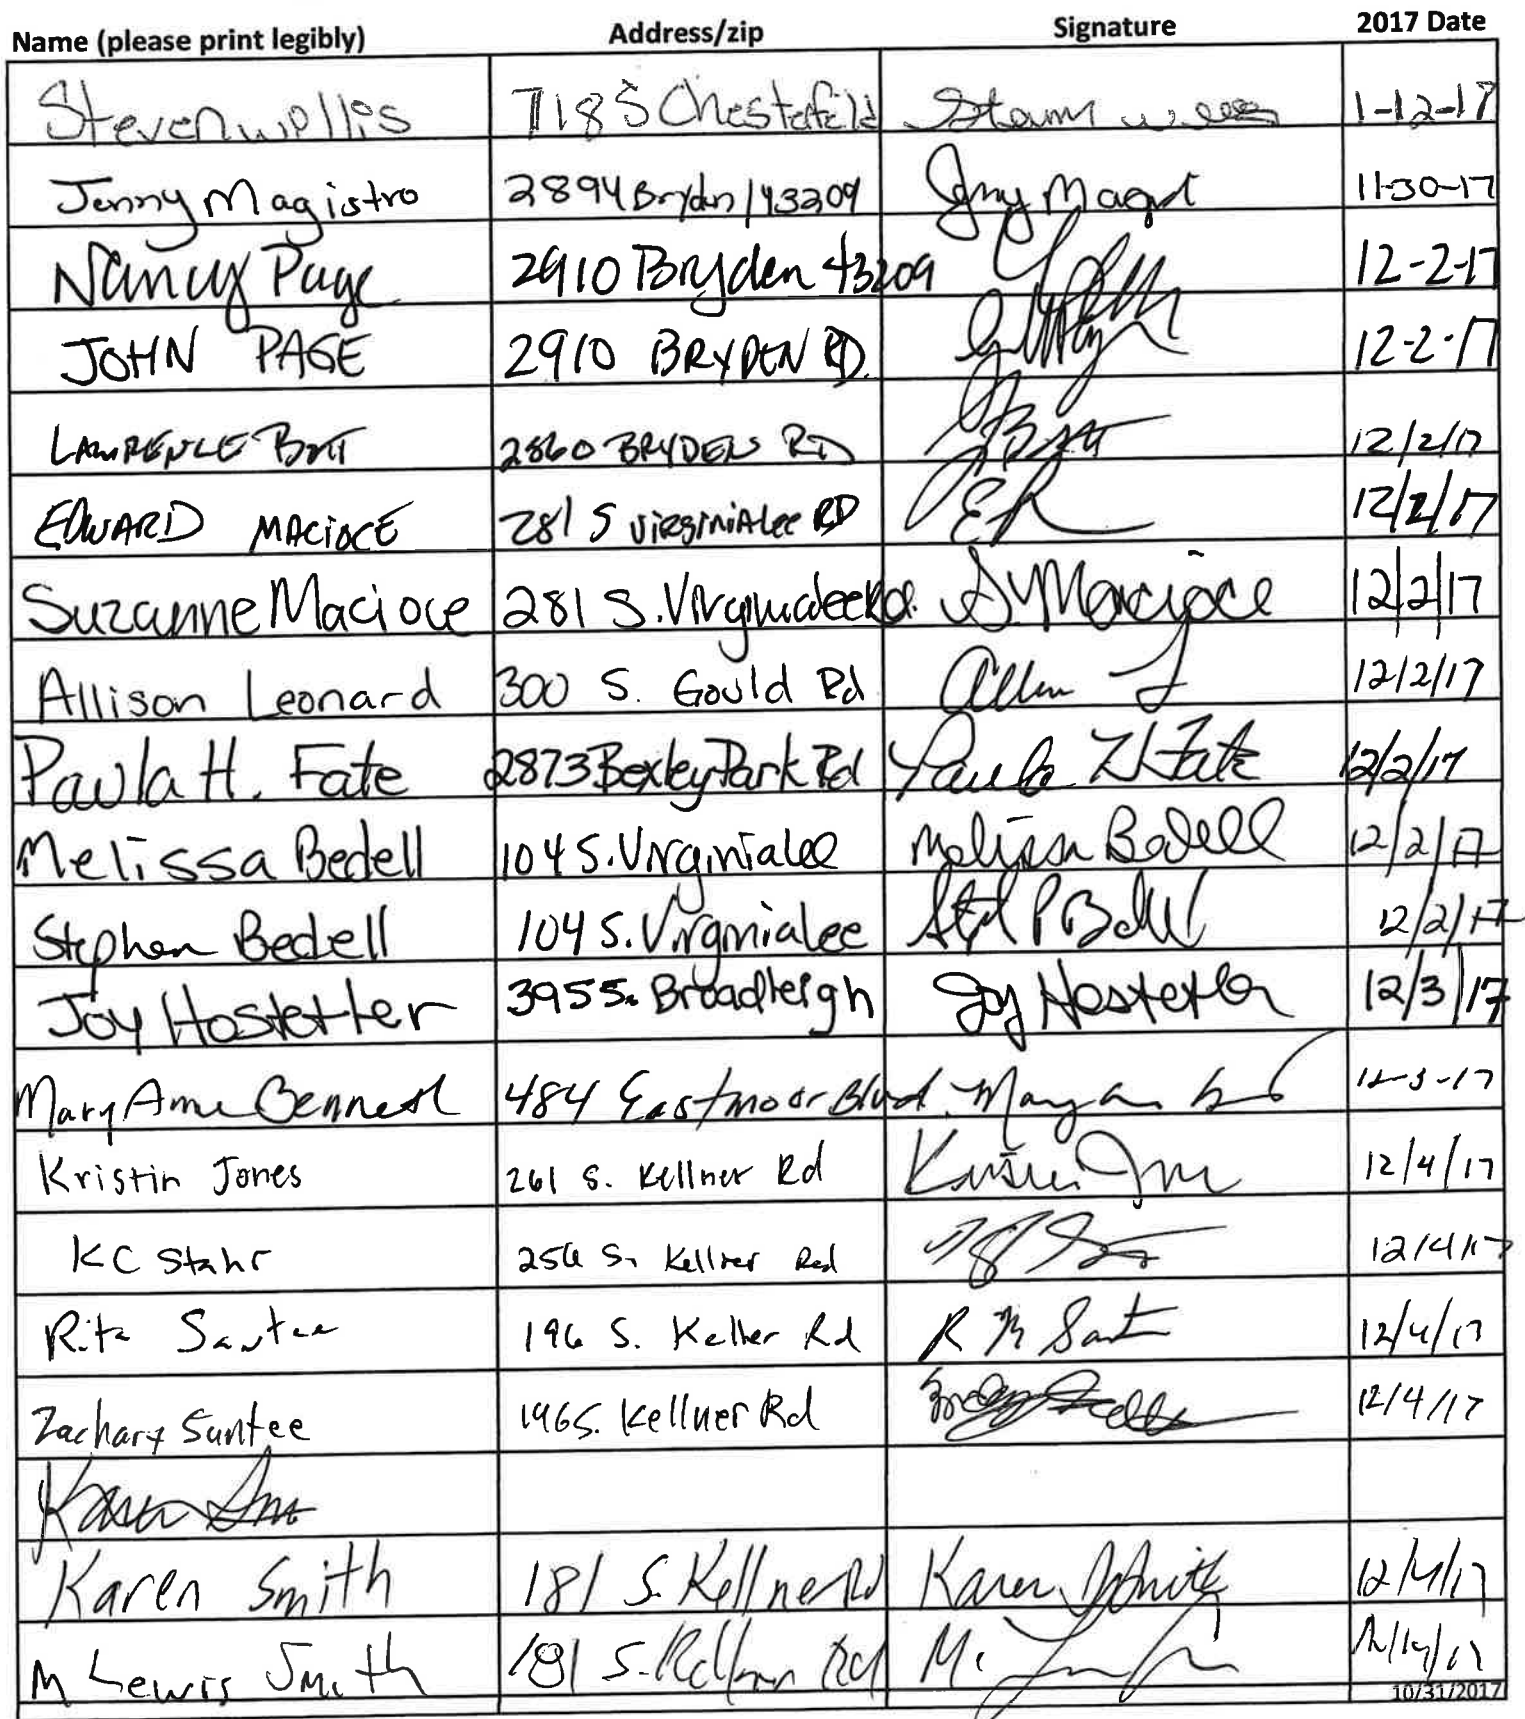 Name (please print legibly) Address/zip Signature 2017 Date
Steven willis 718 S Chesterfield 1-12-17
Jenny Magistro 2894 Bryden/43209 Jenny Magist 11-30-17
Nancy Page 2910 Bryden 43209 12-2-17
JOHN PAGE 2910 BRYDEN RD. 12-2-17
LAWRENCE BOTT 2860 BRYDEN RD 12/2/17
EDWARD MACIOCE 281 S VIRGINIALee RD 12/2/17
Suzanne Macioce 281 S. Virginialee Rd. S Y Macioce 12/2/17
Allison Leonard 300 S. Gould Rd 12/2/17
Paula H. Fate 2873 Bexley Park Rd Paula H Fate 12/2/17
Melissa Bedell 104 S. Virginialee Melissa Bedell 12/2/17
Stephen Bedell 104 S. Virginialee 12/2/17
Joy Hostetler 395 S. Broadleigh Joy Hostetler 12/3/17
Mary Anne Bennett 484 Eastmoor Blvd. 12-3-17
Kristin Jones 261 S. Kellner Rd 12/4/17
KC Stahr 256 S. Kellner Rd 12/4/17
Rita Santee 196 S. Kellner Rd R M Sant 12/4/17
Zachary Santee 196 S. Kellner Rd 12/4/17
Karen Smith 181 S. Kellner Rd Karen Smith 12/4/17
M Lewis Smith 181 S. Kellner Rd
10/31/2017